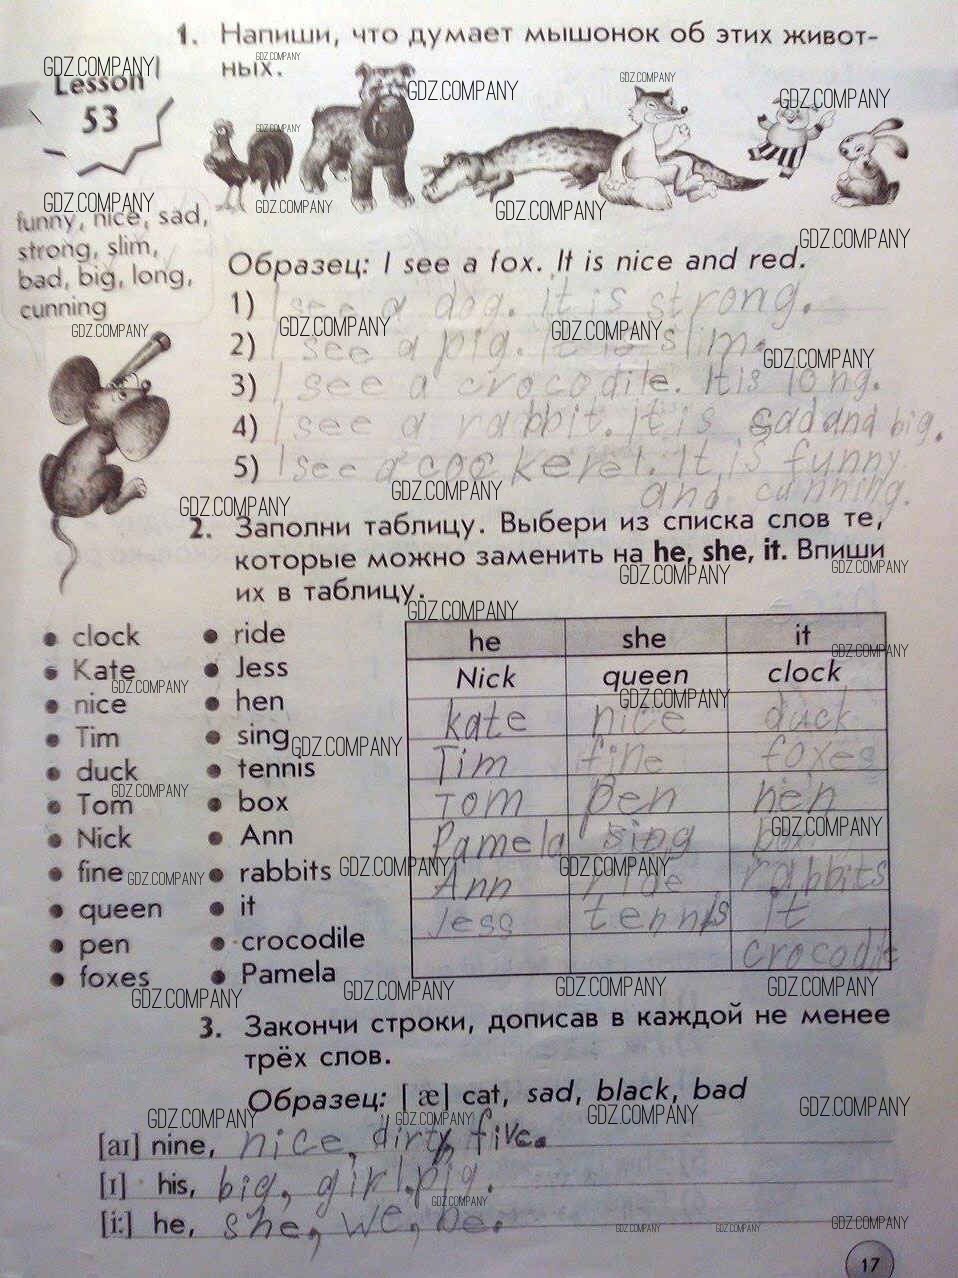 1. Напиши, что думает мышонок об этих живот-
ных.
Lesson
53
GDZ.COMPANY
funny, nice, sad,
strong, slim,
bad, big, long,
cunning
Образец: I see a fox. It is nice and red.
1) I see a dog. It is strong.
2) I see a pig. It is slim.
3) I see a crocodile. It is long.
4) I see a rabbit. It is sad and big.
5) I see a cockerel. It is funny
and cunning.
2. Заполни таблицу. Выбери из списка слов те,
которые можно заменить на he, she, it. Впиши
их в таблицу.
clock
Kate
nice
Tim
duck
Tom
Nick
fine
queen
pen
foxes
ride
Jess
hen
sing
tennis
box
Ann
rabbits
it
crocodile
Pamela
he she it
Nick queen clock
kate nice duck
Tim fine foxes
Tom pen hen
Pamela sing box
Ann ride rabbits
Jess tennis it
crocodile
3. Закончи строки, дописав в каждой не менее
трёх слов.
Образец: [æ] cat, sad, black, bad
[aɪ] nine, nice, dirty, five.
[ɪ] his, big, girl, pig.
[i:] he, she, we, be.
17